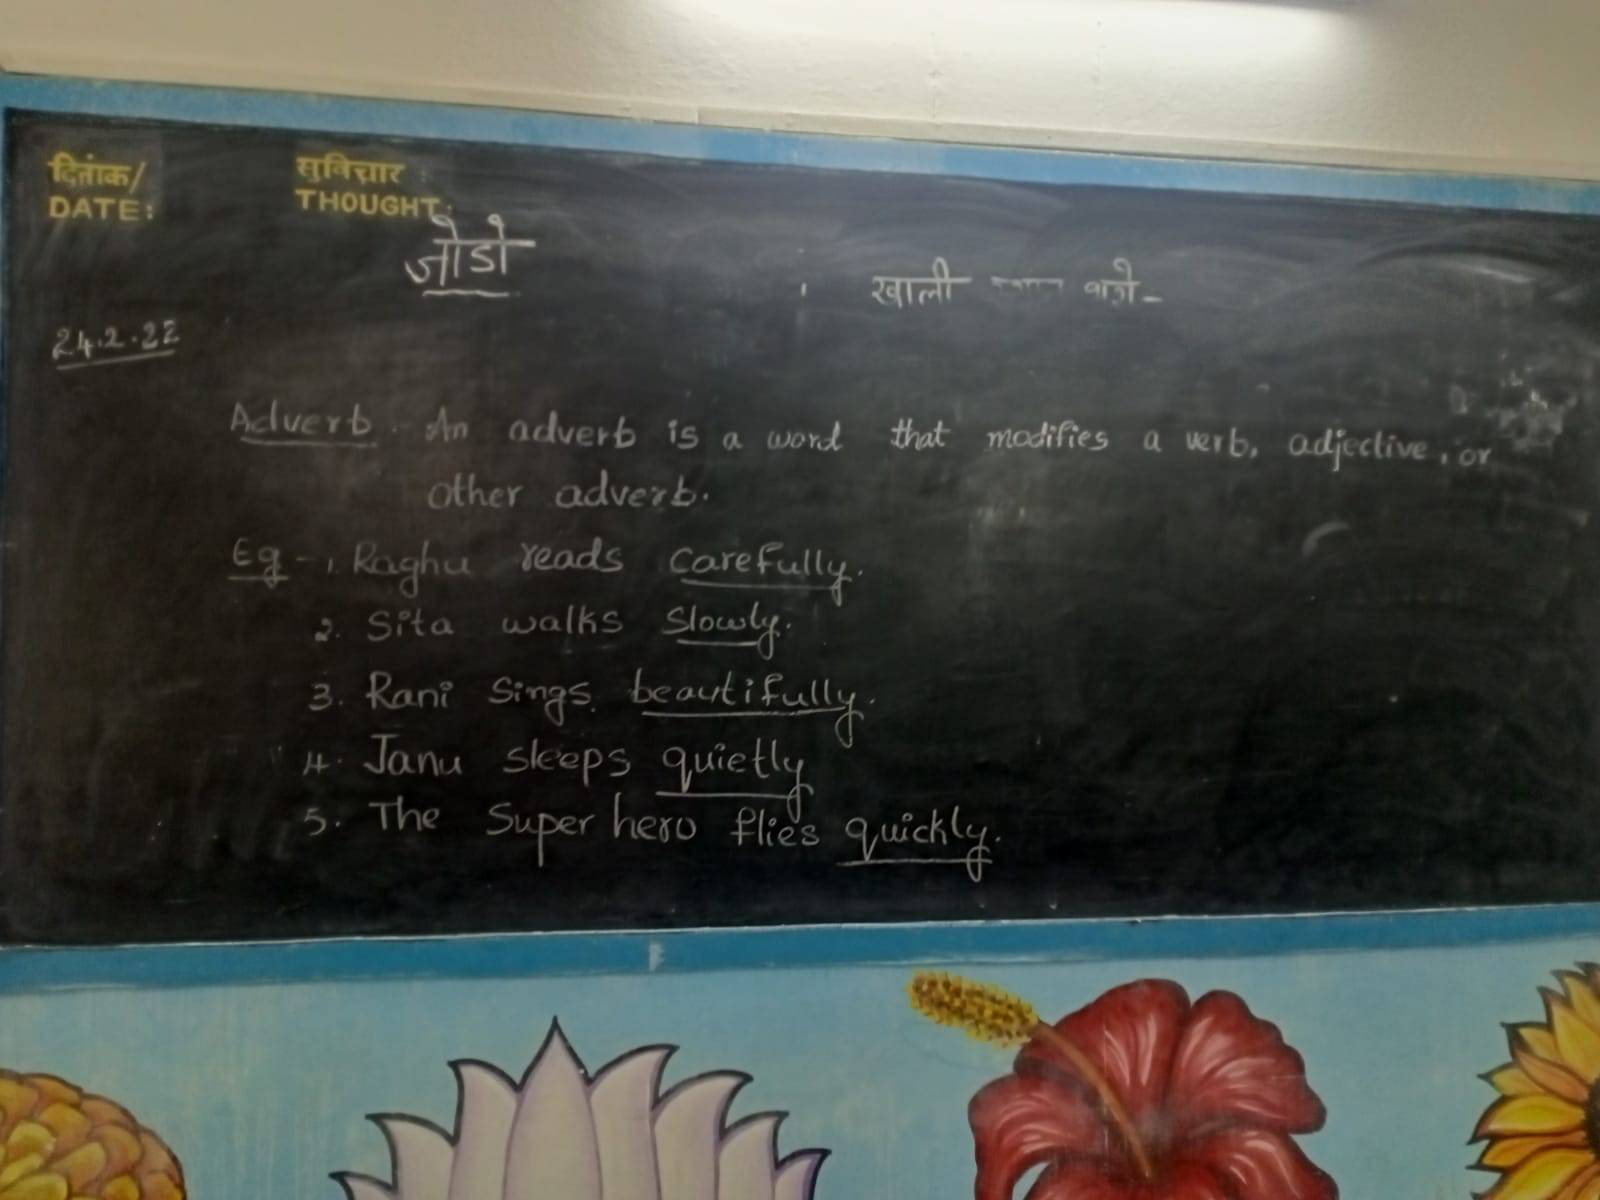 दिनांक/
DATE:
सुविचार :
THOUGHT:
जोडो
खाली
24.2.22
Adverb - An adverb is a word that modifies a verb, adjective, or
other adverb.
Eg - 1. Raghu reads carefully.
2. Sita walks slowly.
3. Rani sings beautifully.
4. Janu sleeps quietly
5. The Super hero flies quickly.